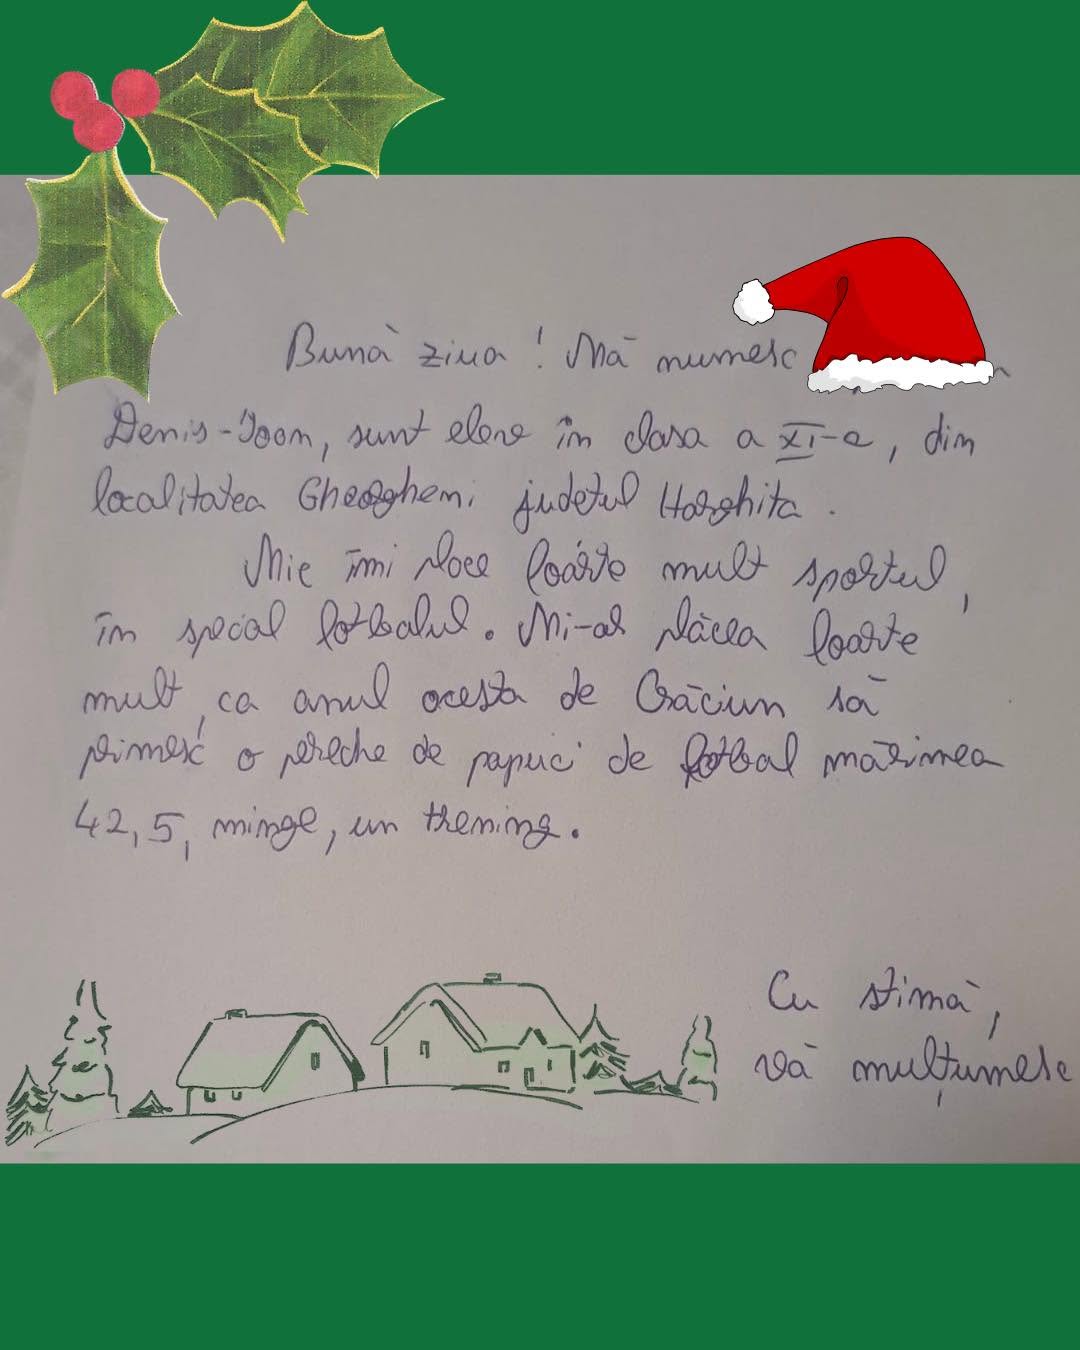 Bună ziua! Mă numesc
Denis-Ioan, sunt elev în clasa a XI-a, din
localitatea Gheorgheni județul Harghita.
Mie îmi place foarte mult sportul,
în special fotbalul. Mi-ar plăcea foarte
mult, ca anul acesta de Crăciun să
primesc o pereche de papuci de fotbal mărimea
42,5, minge, un trening.
Cu stimă,
vă mulțumesc